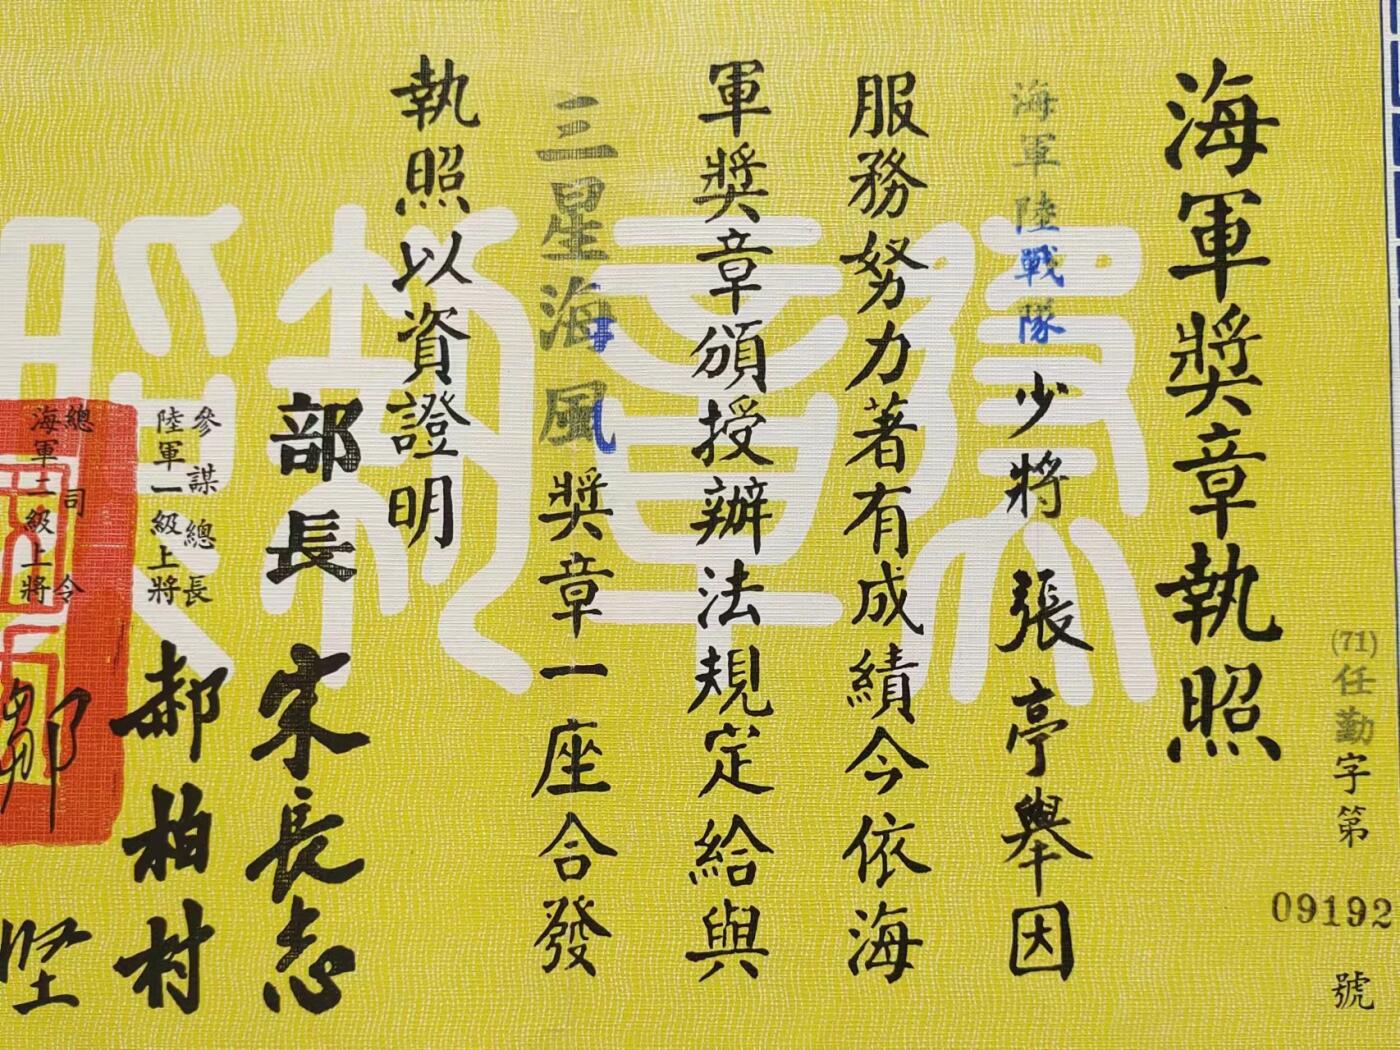 海軍獎章執照
(71)任勤字第09192號
海軍陸戰隊少將張亭舉因
服務努力著有成績今依海
軍獎章頒授辦法規定給與
三星海風獎章一座合發
執照以資證明
部長宋長志
參謀總長
陸軍一級上將
郝柏村
總司令
海軍二級上將
鄒堅